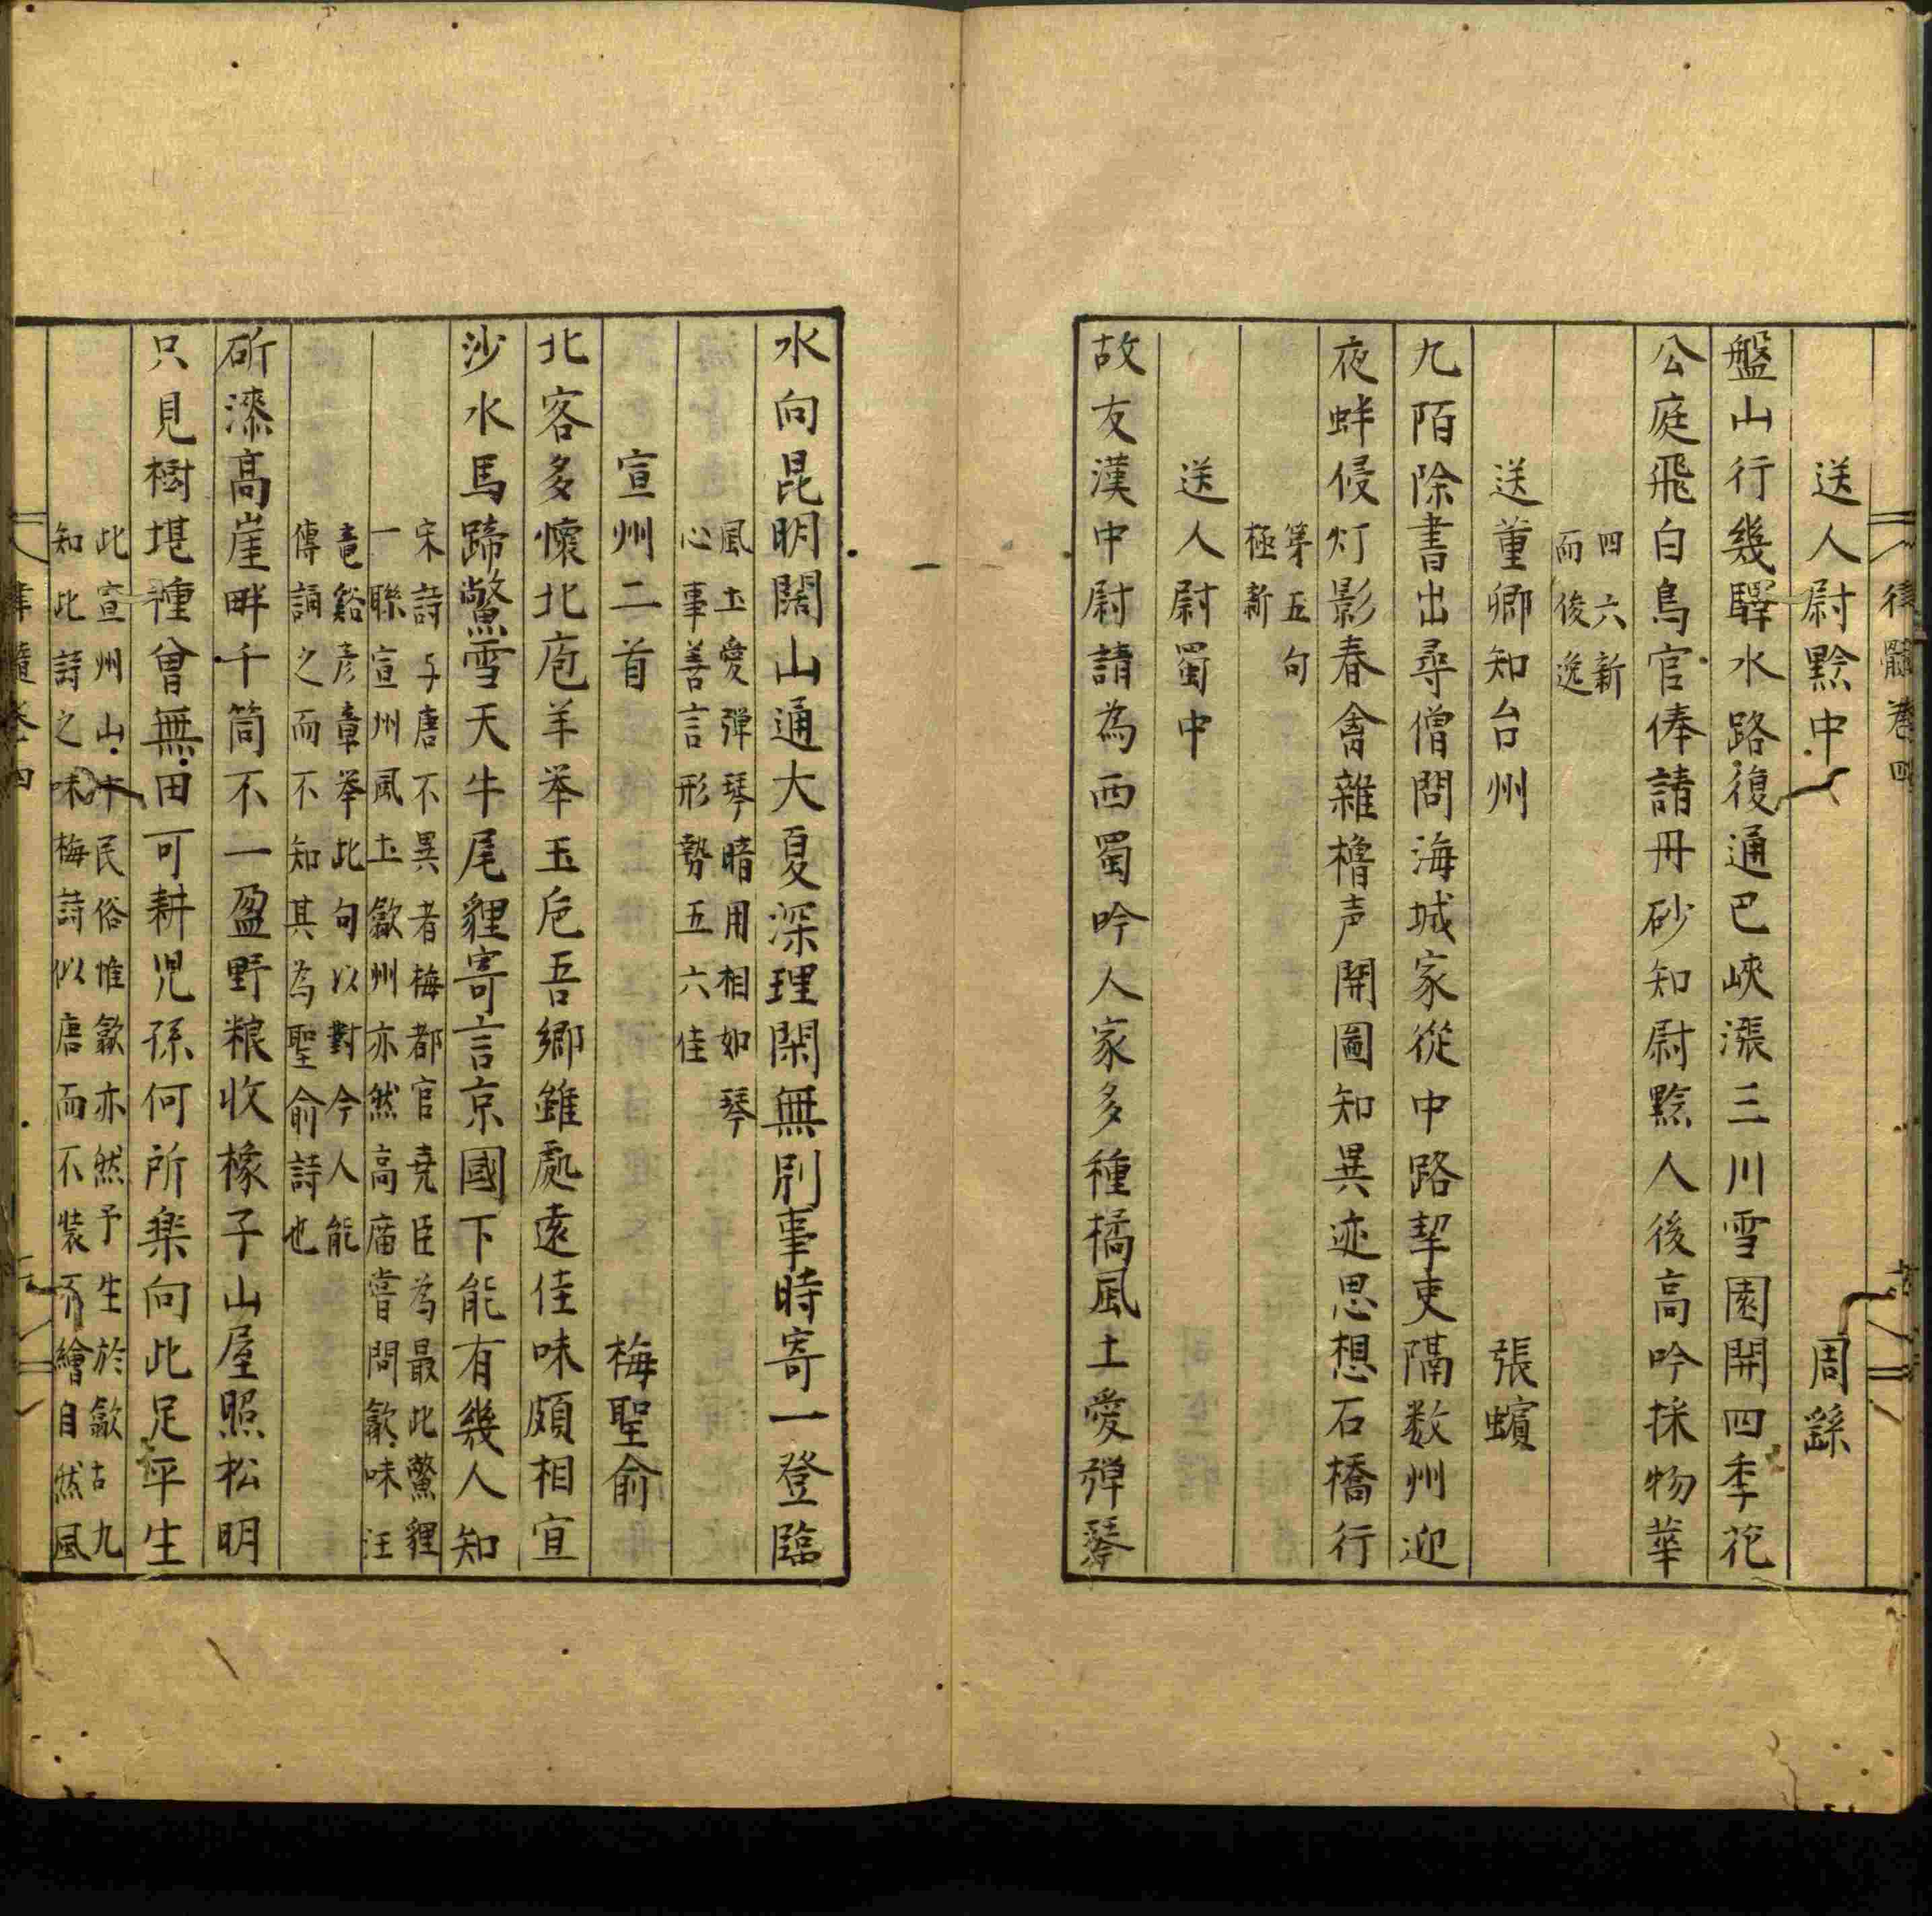 送人尉黔中　周繇
盤山行幾驛水路復通巴峽漲三川雪園開四季花
公庭飛白鳥官俸請丹砂知尉黔人後高吟採物華
四六新
而俊逸
送董卿知台州　張蠙
九陌除書出尋僧問海城家從中路挈吏隔数州迎
夜蚌侵灯影春禽雜櫓声開圖知異迹思想石橋行
第五句
極新
送人尉蜀中
故友漢中尉請為西蜀吟人家多種橘風土愛彈琴
水向昆明闊山通大夏深理閑無別事時寄一登臨
風土愛彈琴暗用相如琴
心事善言形勢五六佳
宣州二首　梅聖俞
北客多懷北庖羊举玉卮吾鄉雖處遠佳味頗相宜
沙水馬蹄鱉雪天牛尾狸寄言京國下能有幾人知
宋詩与唐不異者梅都官尭臣為最此鱉狸
一聯宣州風土歙州亦然高庙嘗問歙味汪
竜谿彦章举此句以對今人能
傳誦之而不知其為聖俞詩也
斫漆高崖畔千筒不一盈野粮收橡子山屋照松明
只見樹堪種曾無田可耕児孫何所楽向此足平生
此宣州山中民俗惟歙亦然予生於歙古九
知此詩之味梅詩似唐而不装不繪自然風